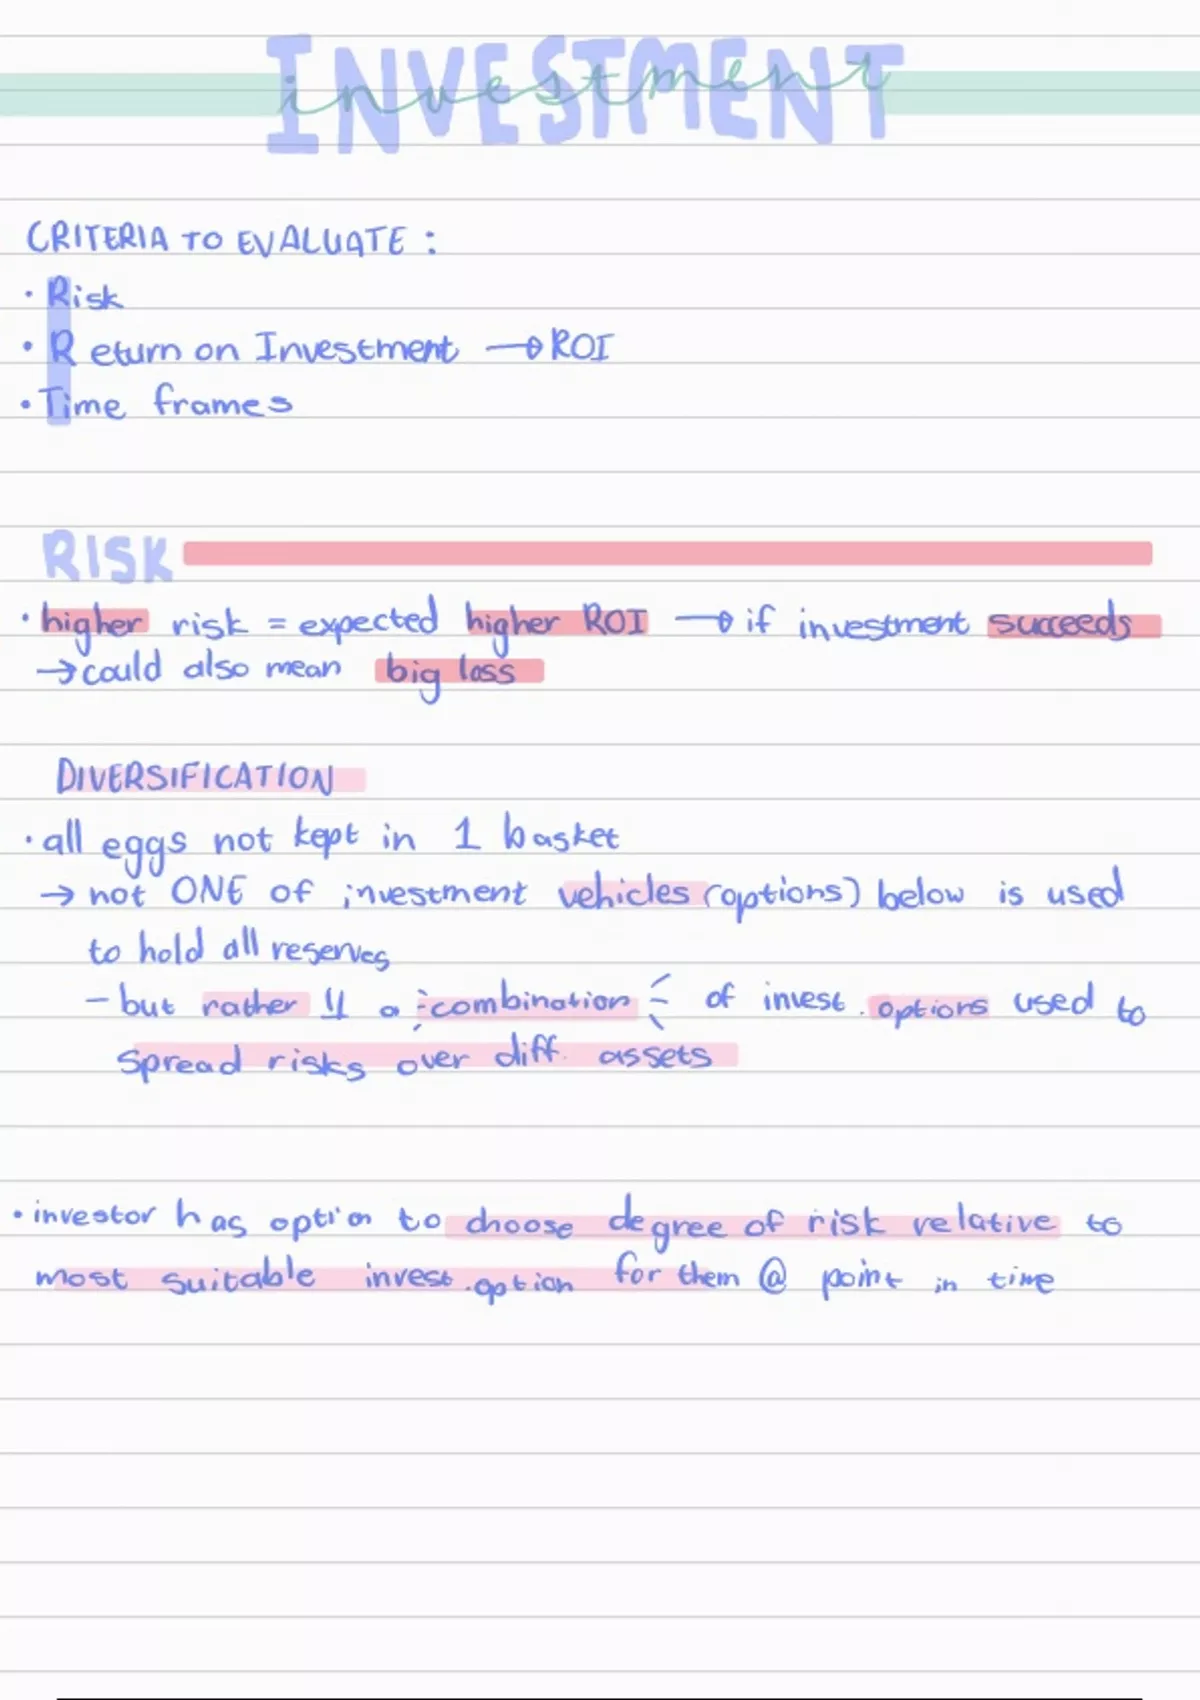 INVESTMENT
investment
CRITERIA TO EVALUATE :
· Risk
· Return on Investment → ROI
· Time frames
RISK
· higher risk = expected higher ROI → if investment succeeds
→ could also mean big loss
DIVERSIFICATION
· all eggs not kept in 1 basket
→ not ONE of investment vehicles (options) below is used
to hold all reserves
- but rather a combination of invest. options used to
spread risks over diff. assets
· investor has option to choose degree of risk relative to
most suitable invest. option for them @ point in time